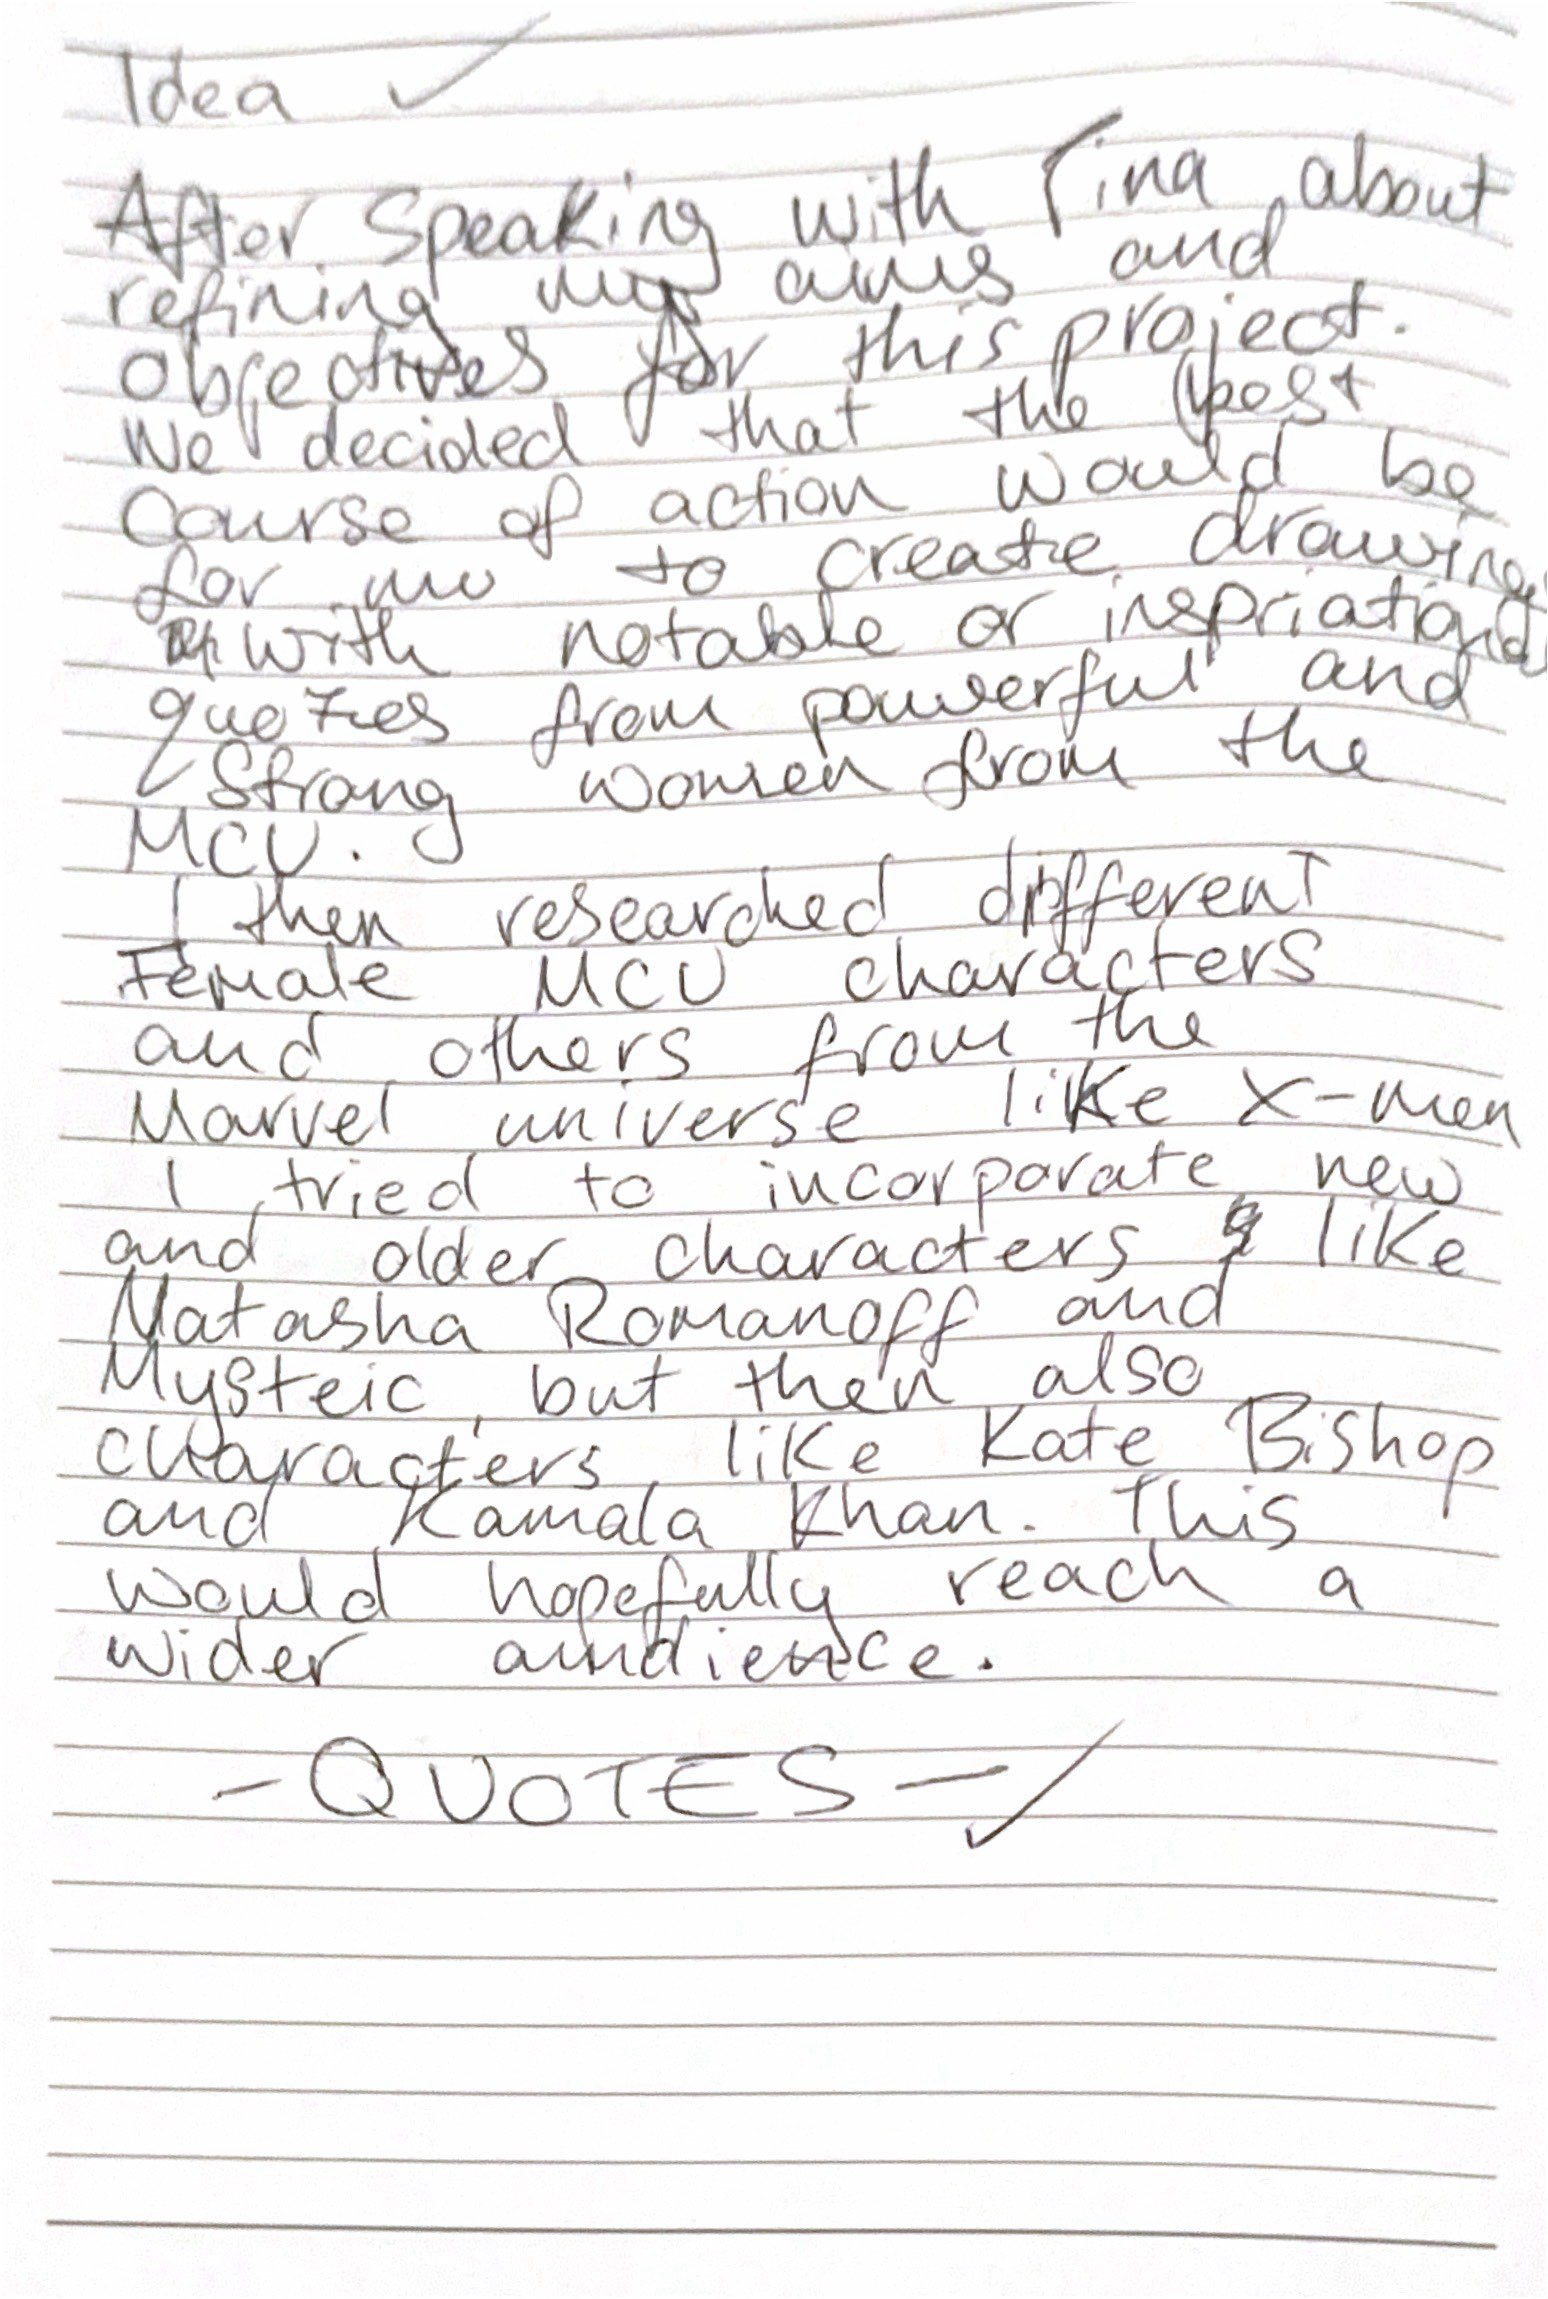 Idea ✓
After Speaking with Tina about
refining my aims and
objectives for this project.
We decided that the best
course of action would be
for me to create drawings
with notable or inspriational
quotes from powerful and
Strong women from the
MCU.
I then researched different
Female MCU characters
and others from the
Marvel universe like X-men
I tried to incorporate new
and older characters like
Natasha Romanoff and
Mysteic, but then also
characters like Kate Bishop
and Kamala Khan. This
would hopefully reach a
wider audience.
- QUOTES - ✓